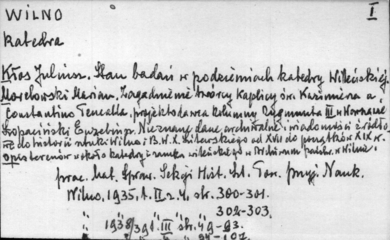 WILNO I
Katedra
Kłos Juliusz. Stan badań w podziemiach katedry Wileńskiej
Morelowski Marian. Zagadnienie twórcy Kaplicy św. Kazimierza a
Constantino Tencalla, projektodawca kolumny Zygmunta III w Warszawie
Łopaciński Euzebiusz. Nieznane dane archiwalne i wiadomości źródłowe
do historii sztuki Wilna i B.W.X. Litewskiego od XVII do początków XIX w.
Opis terenów wokoło katedry i zamku wileńskiego w Archiwum państw. w Wilnie
prac. mat. Spraw. Sekcji Hist. Szt. Tow. przyj. Nauk.
Wilno, 1935, t. II z. 4, str. 300-301.
" " " " 302-303.
" 1938/39 t. III str. 49-93.
" " " " 94-107.